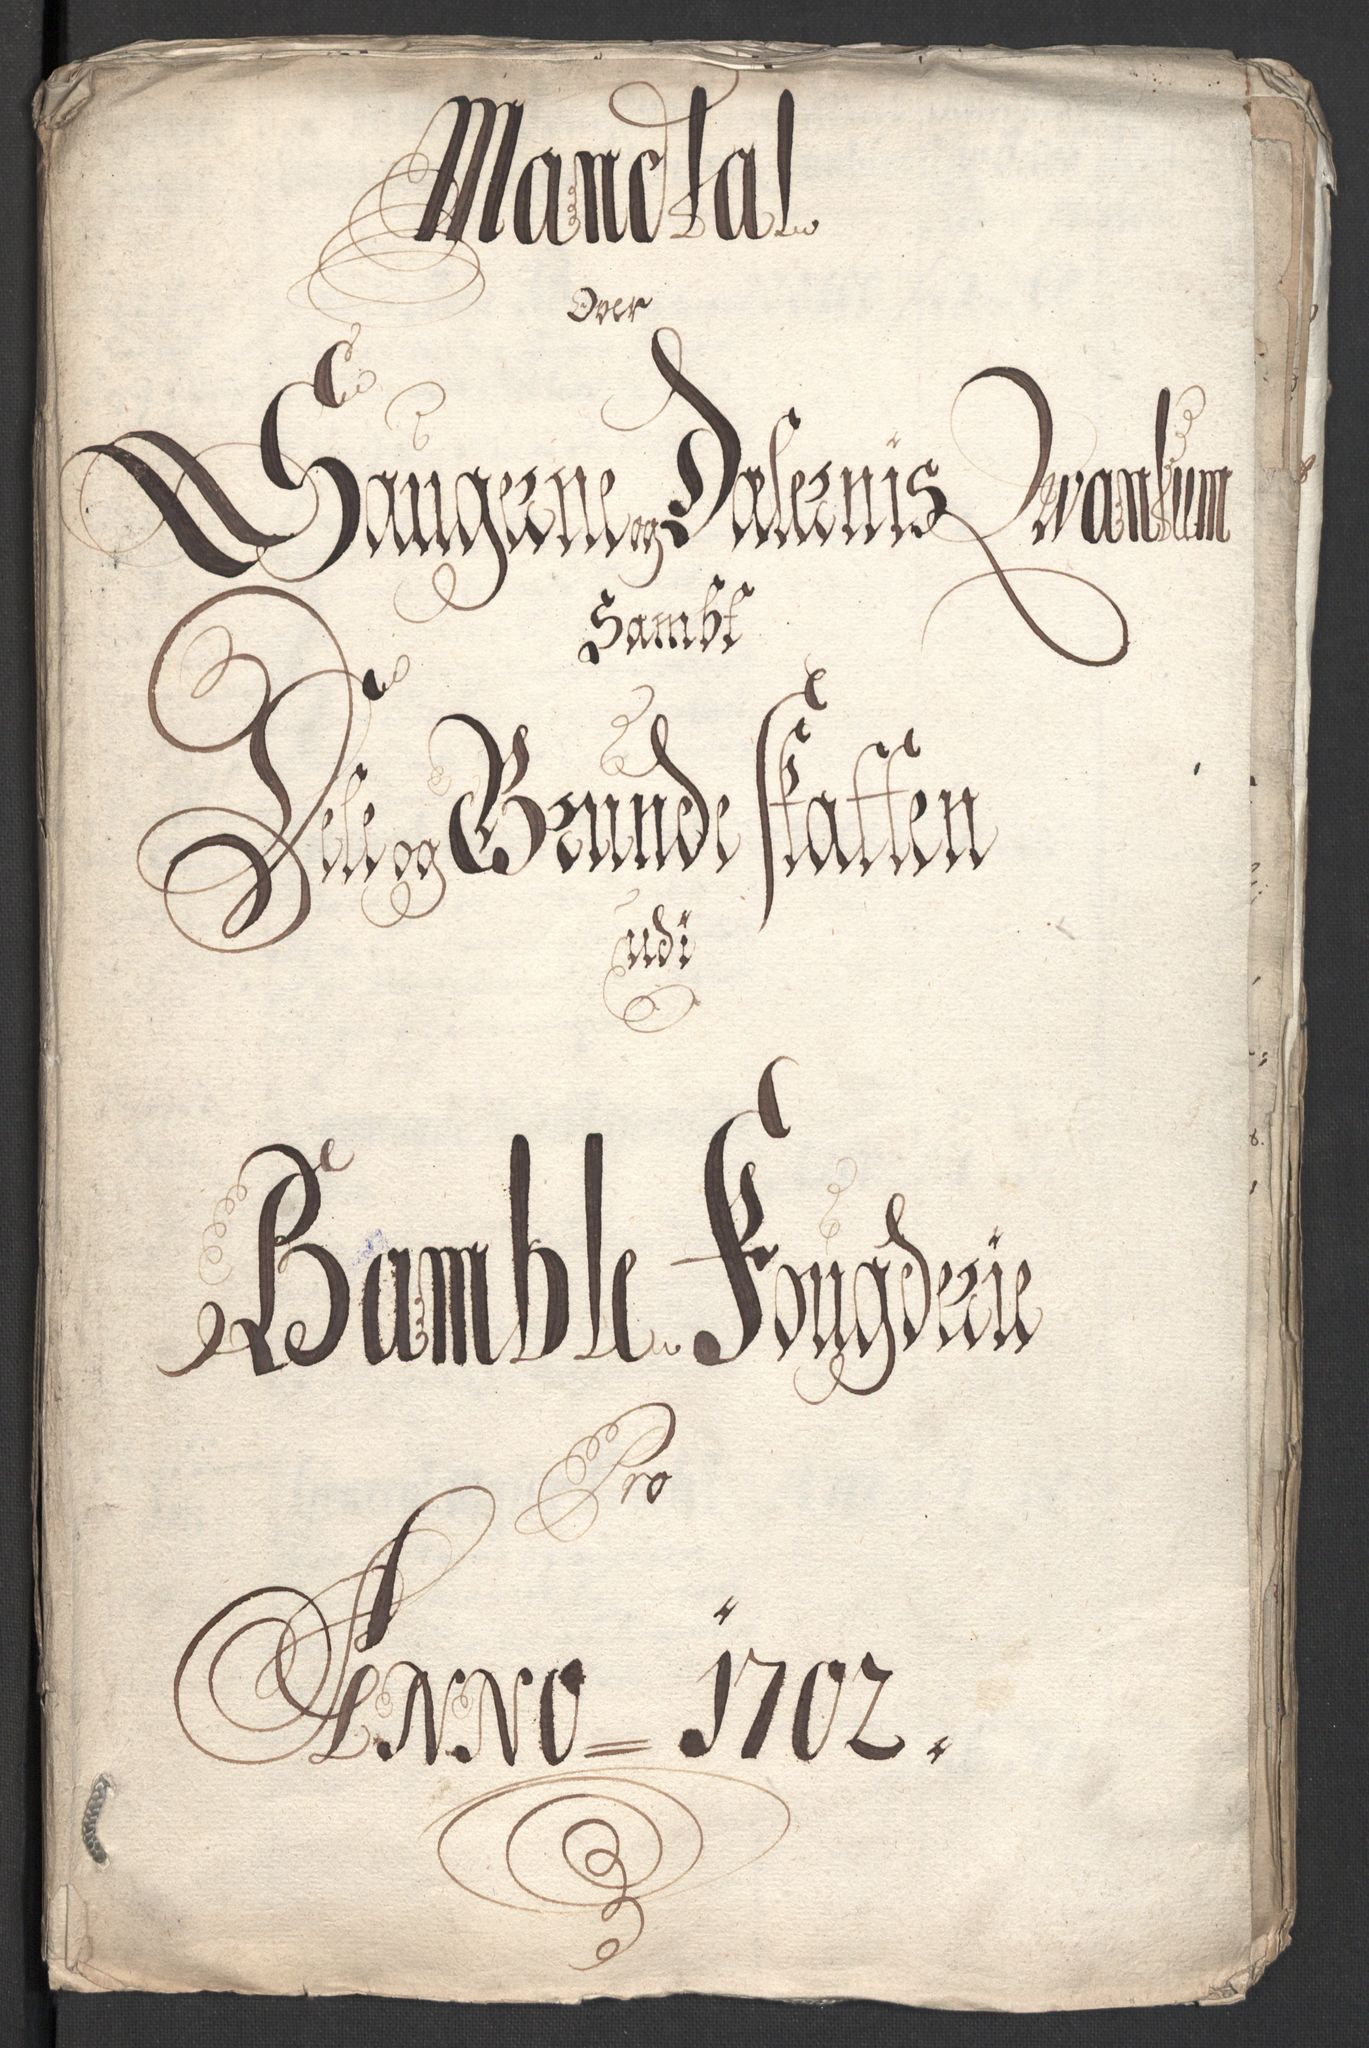 Mandtal
Over
Saugerne og Delernis Qwantum
Sambt
Dele og Grunde skatten
udi
Bamble Fougderie
Pro
ANNO = 1702.